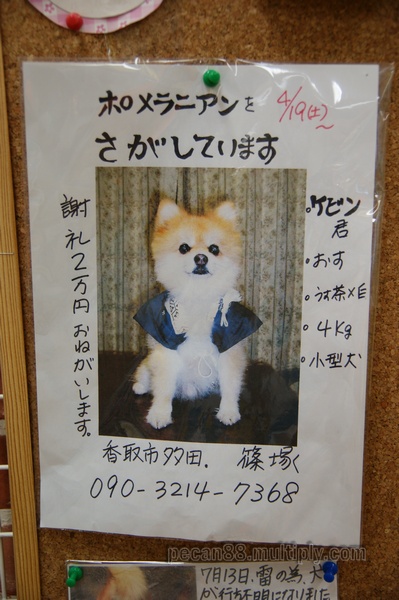 ポメラニアンを
さがしています
4/19(土)〜
謝礼2万円おねがいします。
。ケビン君
。おす
。うす茶×白
。4Kg
。小型犬
香取市多田. 篠塚
090-3214-7368
pecan88.multiply.com
7月13日.雷の為、犬
が行方不明になりました